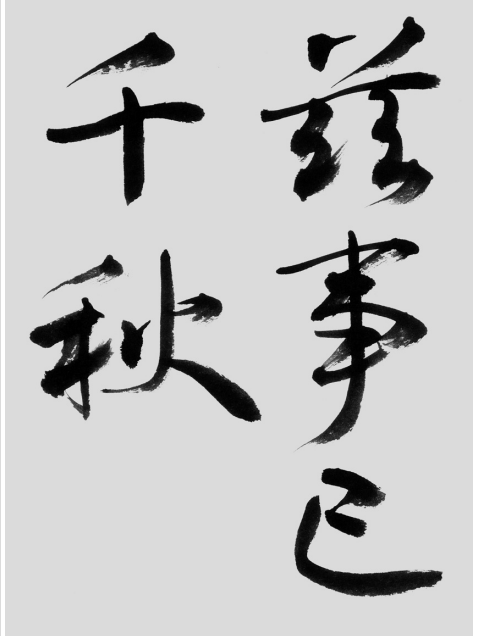 兹事已
千秋